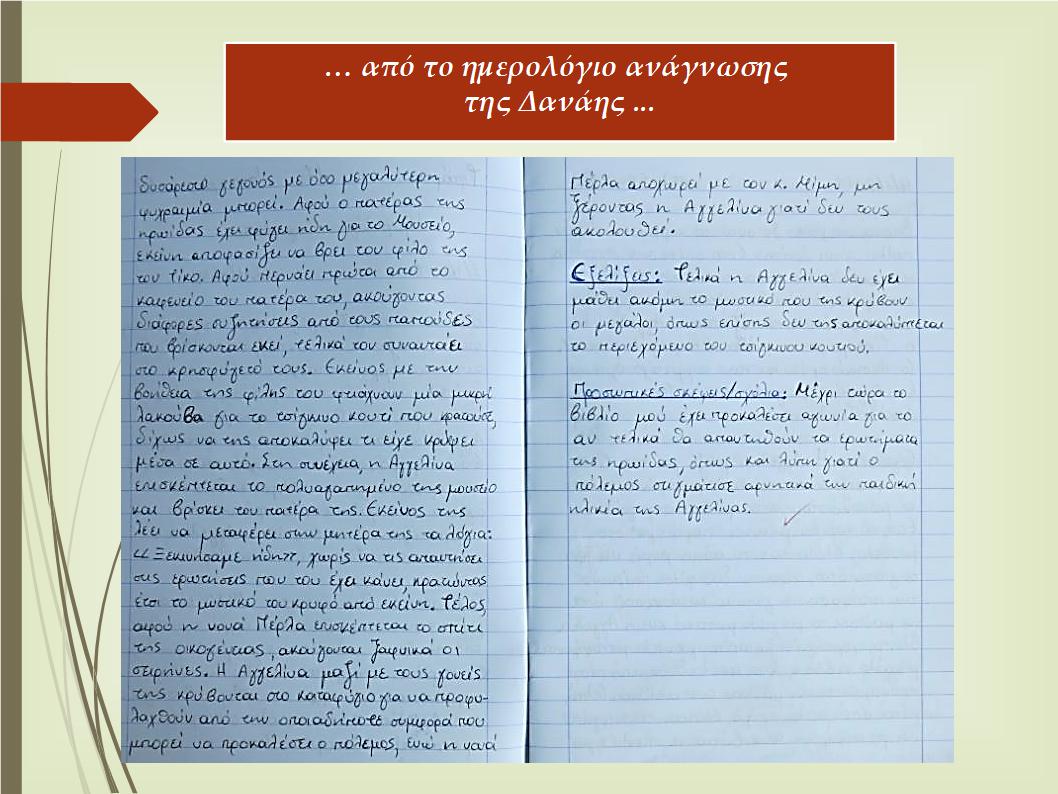 ... από το ημερολόγιο ανάγνωσης
της Δανάης ...
δυσάρεστο γεγονός με όσο μεγαλύτερη
ψυχραιμία μπορεί. Αφού ο πατέρας της
ηρωίδας έχει φύγει ήδη για το Μουσείο,
εκείνη αποφασίζει να βρει τον φίλο της
τον Τίκο. Αφού περνάει πρώτα από το
καφενείο του πατέρα του, ακούγοντας
διάφορες συζητήσεις από τους παππούδες
που βρίσκονται εκεί, τελικά τον συναντάει
στο κρησφύγετό τους. Εκείνος με την
βοήθεια της φίλης του φτιάχνουν μία μικρή
λακούβα για το τσίγκινο κουτί που κρατούσε,
δίχως να της αποκαλύψει τι είχε κρύψει
μέσα σε αυτό. Στη συνέχεια, η Αγγελίνα
επισκέπτεται το πολυαγαπημένο της μουσείο
και βρίσκει τον πατέρα της. Εκείνος της
λέει να μεταφέρει στην μητέρα της τα λόγια:
<<Ξεκινήσαμε ήδη>>, χωρίς να τις απαντήσει
στις ερωτήσεις που του έχει κάνει, κρατώντας
έτσι το μυστικό του κρυφό από εκείνη. Τέλος,
αφού η νονά Πέρλα επισκέπτεται το σπίτι
της οικογένειας, ακούγονται ξαφνικά οι
σειρήνες. Η Αγγελίνα μαζί με τους γονείς
της κρύβονται στο καταφύγιο για να προφυ-
λαχθούν από την οποιαδήποτε συμφορά που
μπορεί να προκαλέσει ο πόλεμος, ενώ η νονά
Πέρλα αποχωρεί με τον κ. Μίμη, μη
ξέροντας η Αγγελίνα γιατί δεν τους
ακολουθεί.
Εξελίξεις: Τελικά η Αγγελίνα δεν έχει
μάθει ακόμη το μυστικό που της κρύβουν
οι μεγάλοι, όπως επίσης δεν της αποκαλύπτεται
το περιεχόμενο του τσίγκινου κουτιού.
Προσωπικές σκέψεις/σχόλια: Μέχρι τώρα το
βιβλίο μού έχει προκαλέσει αγωνία για το
αν τελικά θα απαντηθούν τα ερωτήματα
της ηρωίδας, όπως και λύπη γιατί ο
πόλεμος στιγμάτισε αρνητικά την παιδική
ηλικία της Αγγελίνας.